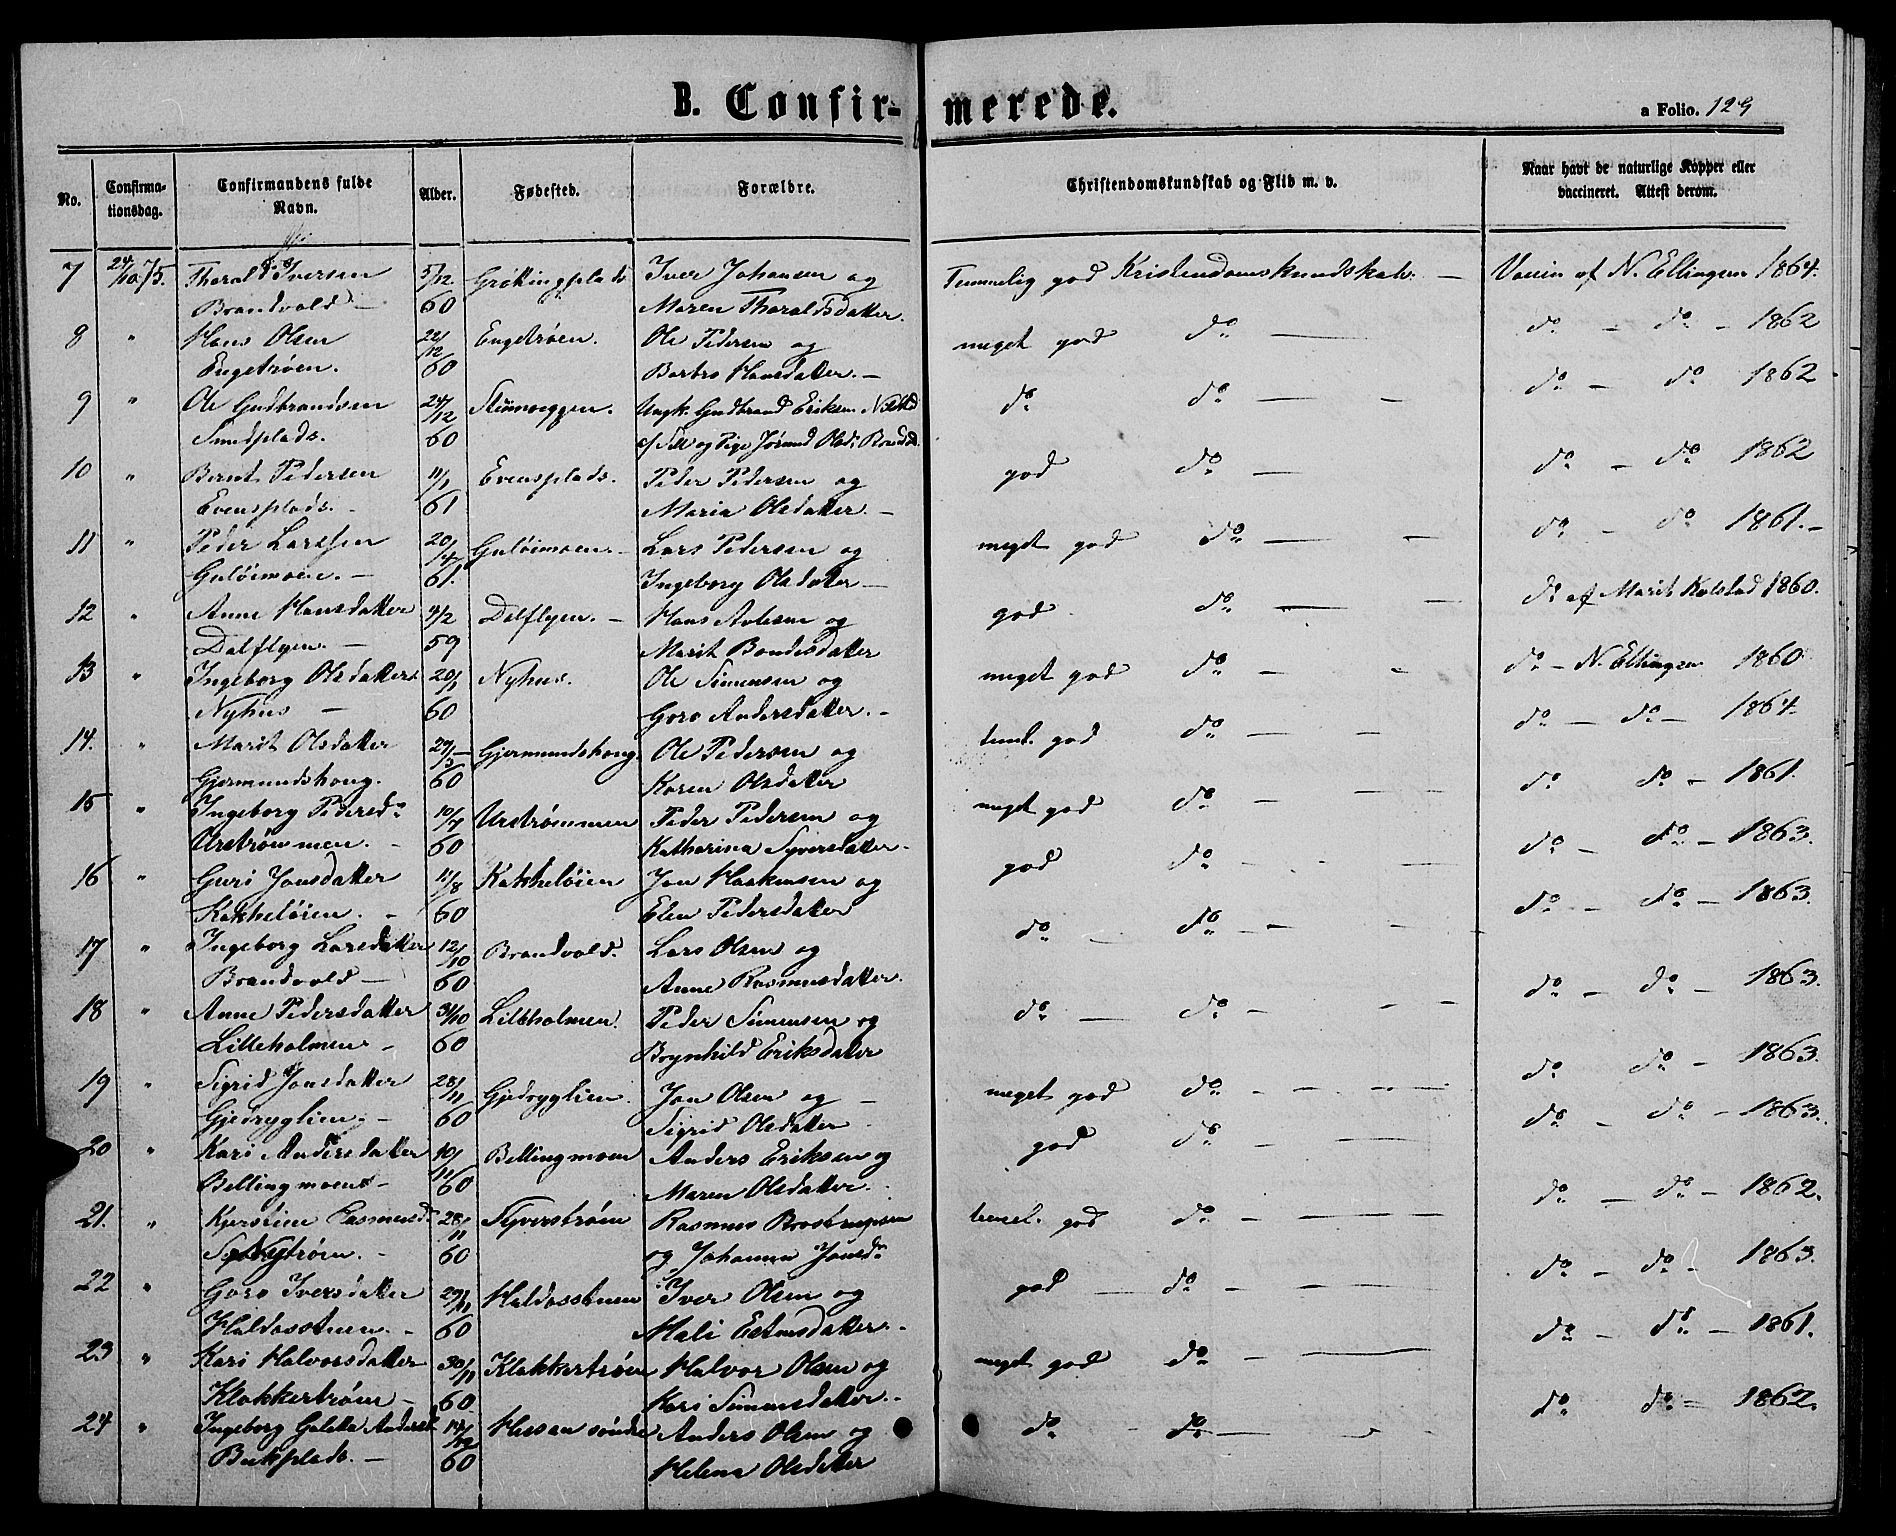 B. Confir- merede.
a Folio. 129
No. Confirma-tionsdag. Confirmandens fulde Navn. Alder. Fødested. Forældre. Christendomskundskab og Flid m. v. Naar havt de naturlige Kopper eller vaccineret. Attest derom.
7 24/10 75. Tharald Iversen 5/12 Grøtting plads Iver Johansen og Temmelig god Kristendomskundskab. — Vaccin af N. Ellingsen 1864.
Brandvold — 60 Maren Tharaldsdatter.
8 " Hans Olsen 22/12 Engetrøen. Ole Pedersen og meget god do — do — do — 1862
Engetrøen. 60 Barbro Hansdatter. —
9 " Ole Gudbrandsen 24/12 Ungk. Gudbrand Eriksen do do — do — do 1862
Smedplads. 60 og Pige Jørand Olsd.
10 " Bernt Pedersen 11/1 Evensplads. Peder Pedersen og god do — do — do 1862
Evensplads. 61 Maria Olsdatter. —
11 " Peder Larssen 20/4 Guløimoen. Lars Pedersen og meget god do — do — do 1861. —
Guløimoen. — 61. Ingeborg Olsdatter —
12 " Anne Hansdatter 4/2 Dalflyen. — Hans og god do — do af Marit Kolstad 1860.
Dalflyen. — 59 Marit Bondesdatter
13 " Ingeborg Olsdatter 20/1 Nyhus. Ole Simensen og meget god do — do — N. Ellingsen 1860
Nyhus — 60 Goro Andersdatter. —
14. " Marit Olsdatter 27/5 Gjermundshoug. Ole Pedersen og teml. god do — do — do — 1864.
Gjermundshoug. 60 Karen Olsdatter
15 " Ingeborg Pedersd. 10/7 Urstrømmen Peder Pedersen og meget god do — do do — 1861.
Urstrømmen. — 60 Katharina Syversdatter.
16 " Guri Jonsdatter 11/8 Kakkeløien Jon Haakensen og god do — do — do — 1863.
Kakkeløien. — 60 Elen Pedersdatter
17 " Ingeborg Larsdatter 12/10 Brandvold. Lars Olsen og do — do — do — do — 1863.
Brandvold — 60 Anne Rasmusdatter.
18 " Anne Pedersdatter 31/10 Lilleholmen. Peder Simensen og do — do — do — do — 1863.
Lilleholmen. — 60 Brynhild Eriksdatter
19 " Sigrid Jonsdatter 28/11 Gjedryglien. Jon Olsen og — meget god do — do do — 1863.
Gjedryglien. — 60 Sigrid Olsdatter
20 " Kari Andersdatter 10/11 Bellingmoen Anders Eriksen og god do — do — do — 1863.
Bellingmoen — 60 Maren Olsdatter.
21. " Kjerstine Rasmusd. 28/11 Syverstrøen Rasmus og temel. god do — do — do — 1862.
60 og Johanna Jonsd.
22 " Goro Iversdatter 29/11 Haldosstuen Iver Olsen og god — do — do — do — 1863.
Haldosstuen. — 60 Mali
23 " Kari Halvorsdatter 30/11 Klokkertrøen Halvor Olsen og meget god do — do — do — 1861.
Klokkertrøen — 60 Kari Simensdatter. —
24 " Ingeborg Andersd. 14/12 Messen søndre Anders Olsen og do — do — do do — 1862.
60 Helena Olsdatter